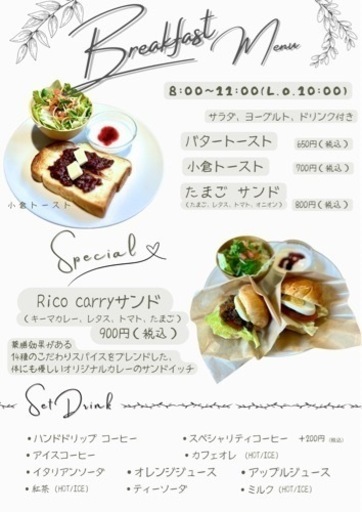 Breakfast
Menu
8:00~11:00(L.o.10:00)
サラダ、ヨーグルト、ドリンク付き
バタートースト 650円(税込)
小倉トースト 700円(税込)
たまご サンド
(たまご、レタス、トマト、オニオン) 800円(税込)
小倉トースト
Special
Rico carryサンド
(キーマカレー、レタス、トマト、たまご)
900円(税込)
薬膳効果がある
14種のこだわりスパイスをブレンドした、
体にも優しいオリジナルカレーのサンドイッチ
Set Drink
•ハンドドリップ コーヒー
•スペシャリティコーヒー +200円(税込)
•アイスコーヒー
•カフェオレ (HOT/ICE)
•イタリアンソーダ •オレンジジュース •アップルジュース
•紅茶 (HOT/ICE) •ティーソーダ •ミルク (HOT/ICE)